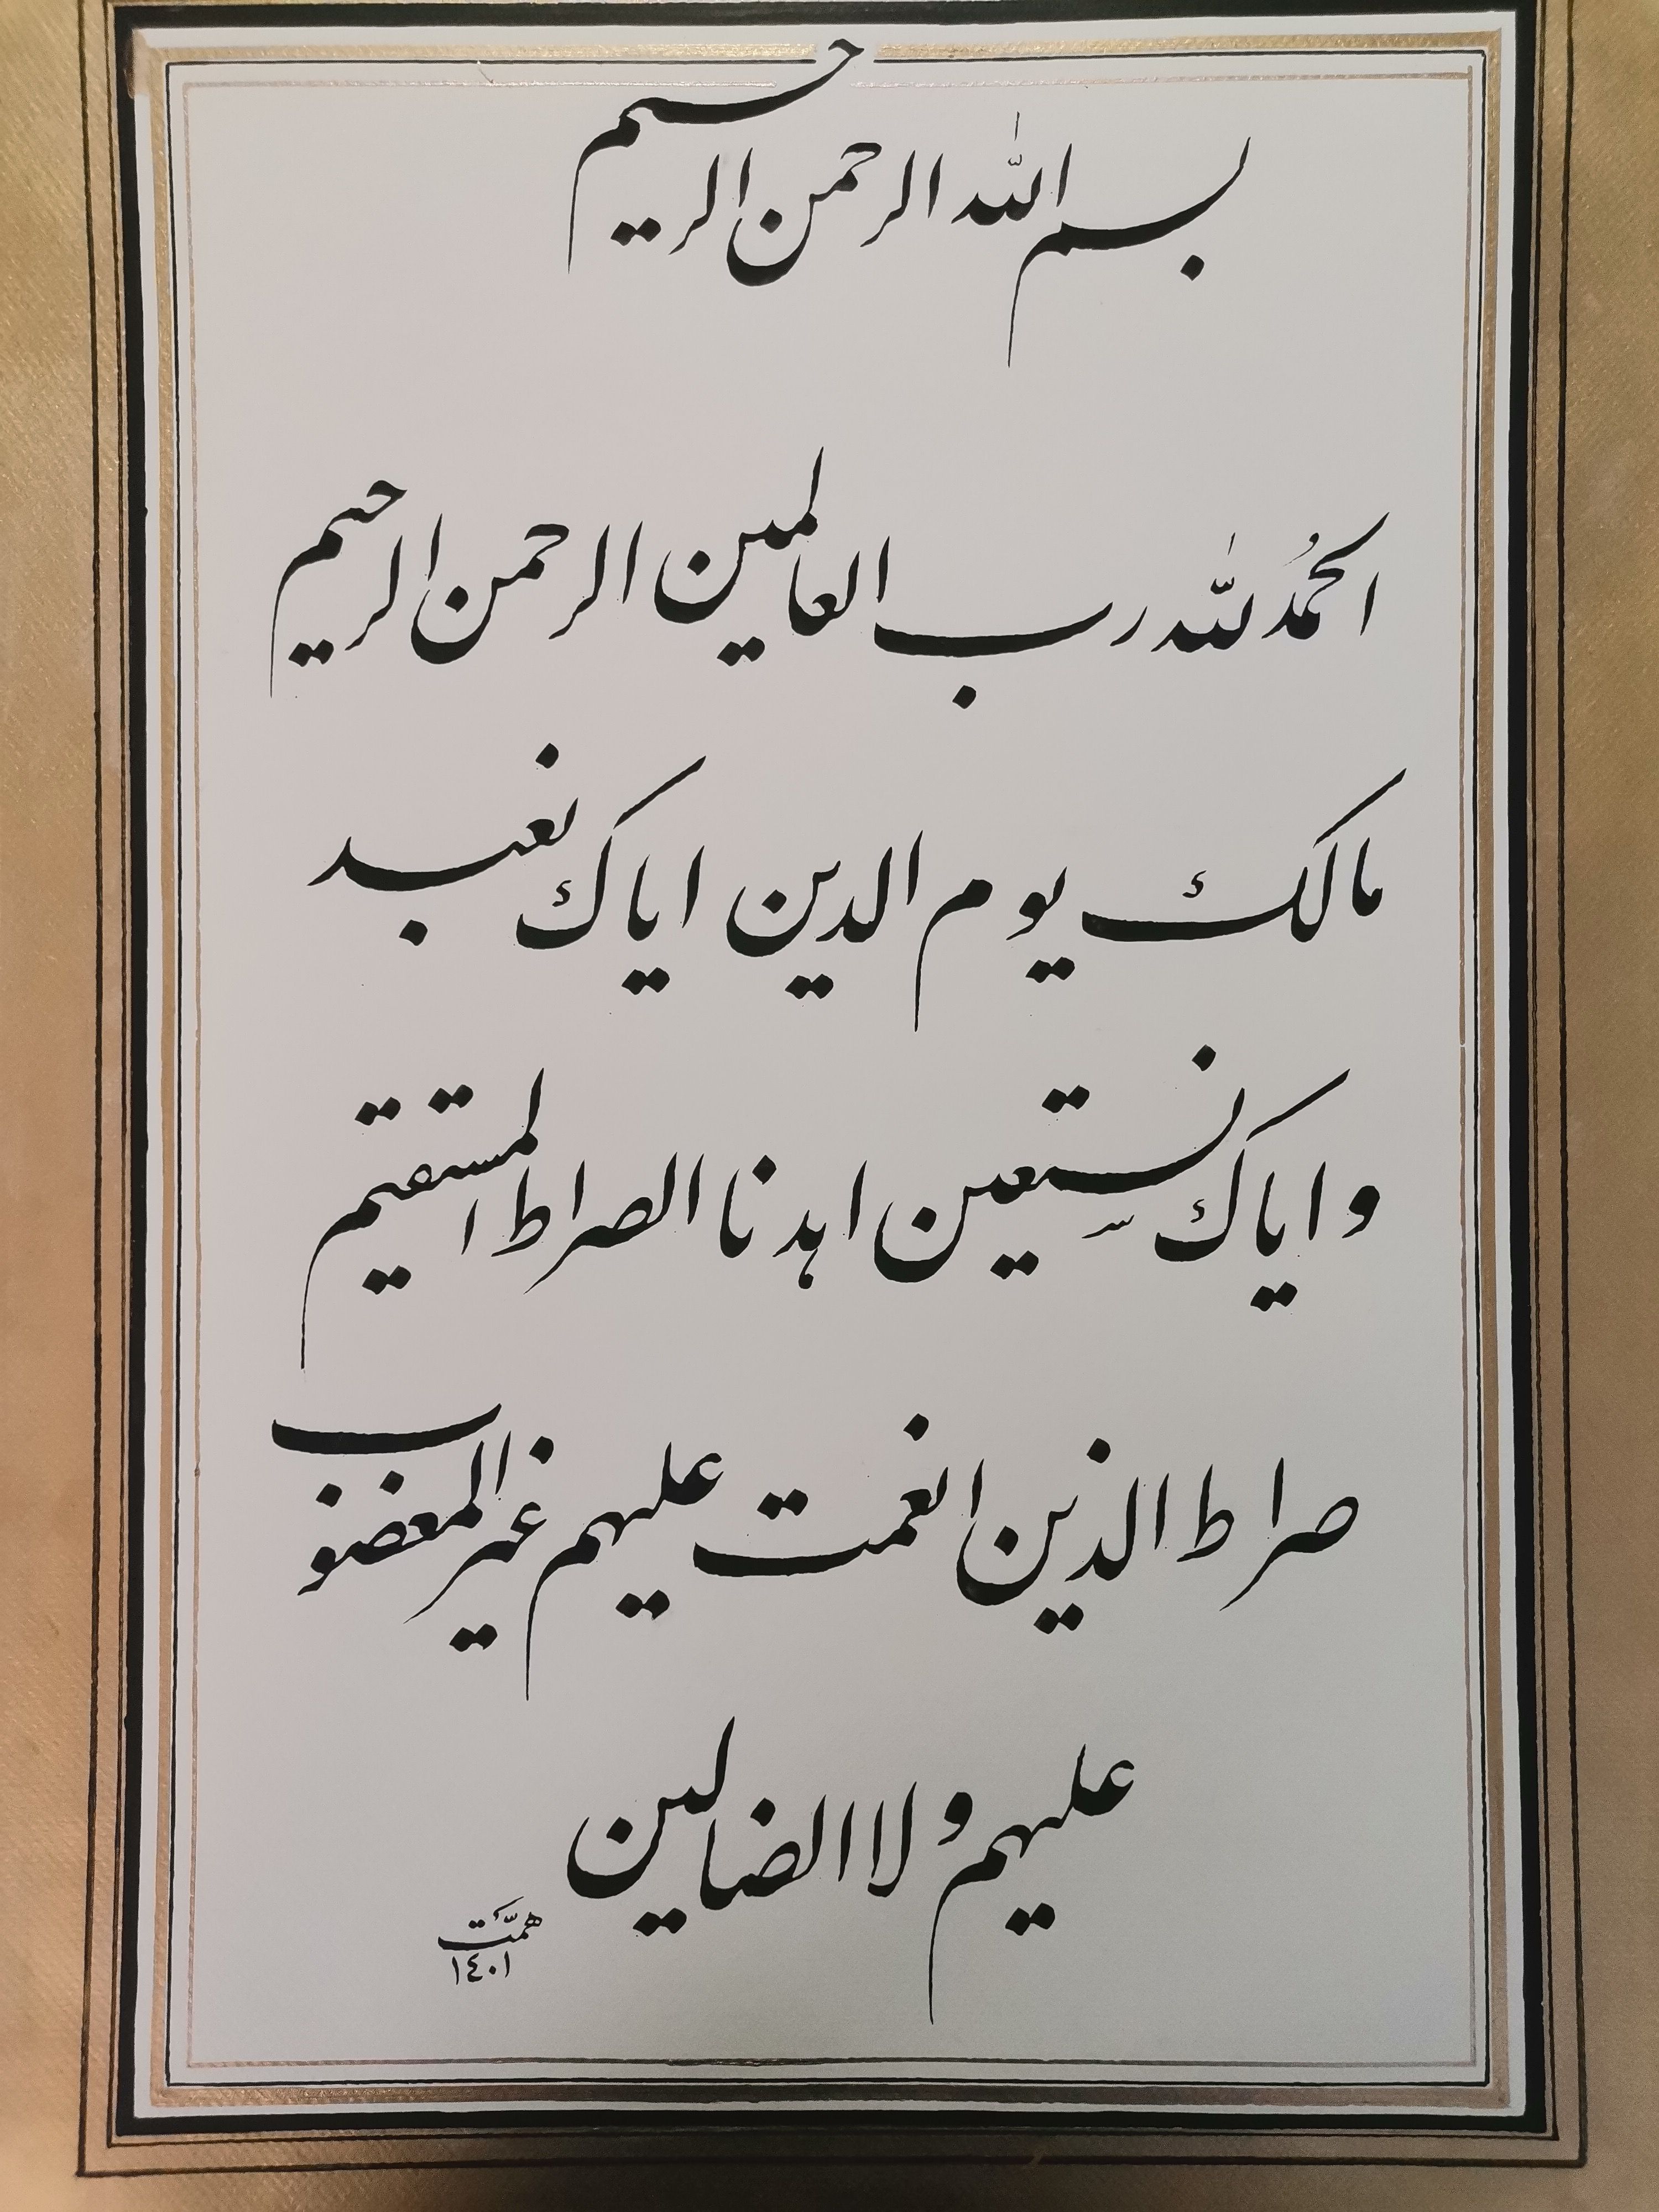 بسم الله الرحمن الرحیم
الحمُد لله رب العالمین الرحمن الرحیم
مالک یوم الدین ایاک نعبد
و ایاک نستعین اهدنا الصراط المستقیم
صراط الذین انعمت علیهم غیر المغضوب
علیهم و لا الضالین
همّت
١٤٠١